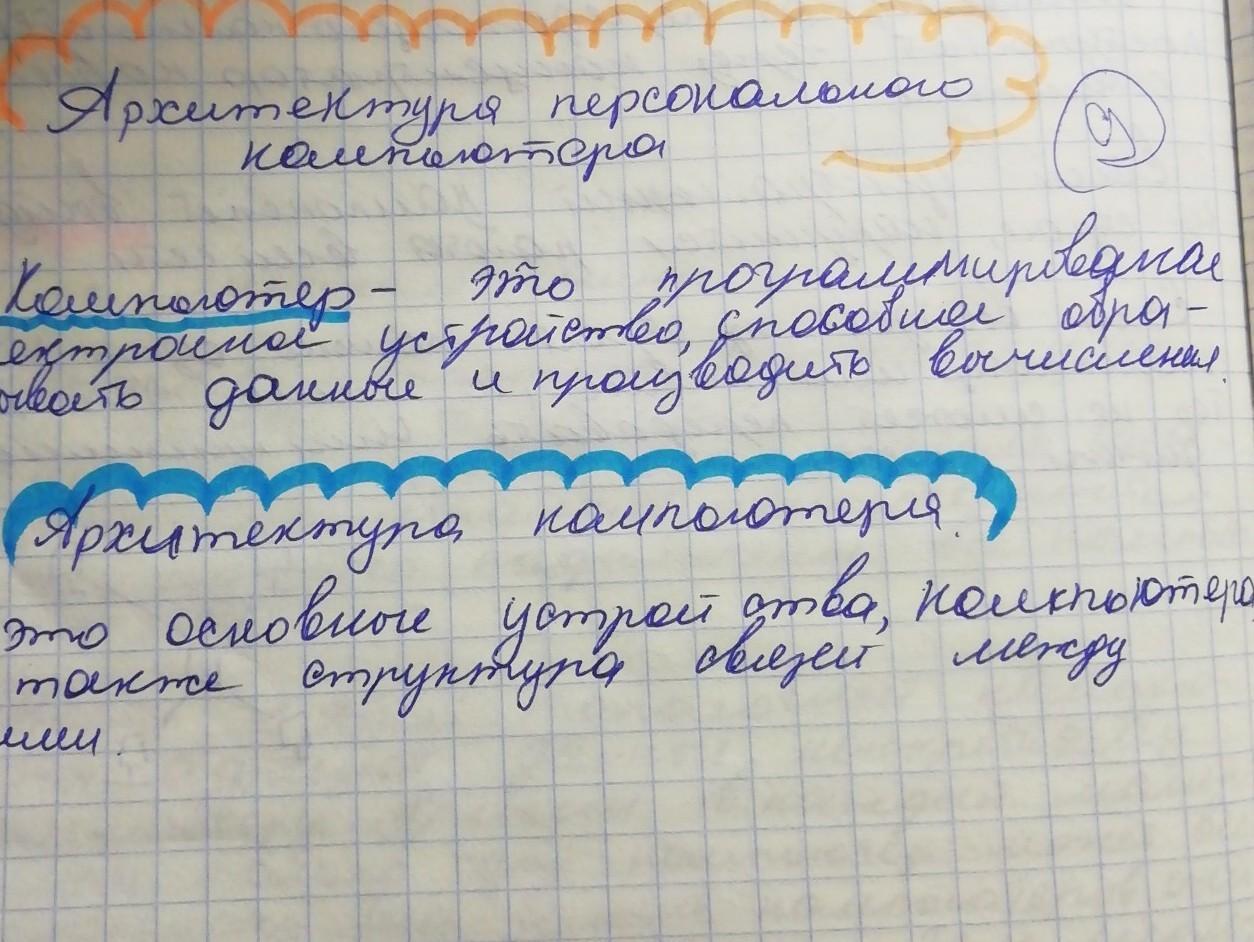 Архитектура персонального
компьютера
9
Компьютер - это программированое
ектронное устройство, способное обра-
ывать данные и производить вычисления.
Архитектура компьютера.
это основные устройства, компьютера,
также структура связей между
ими.